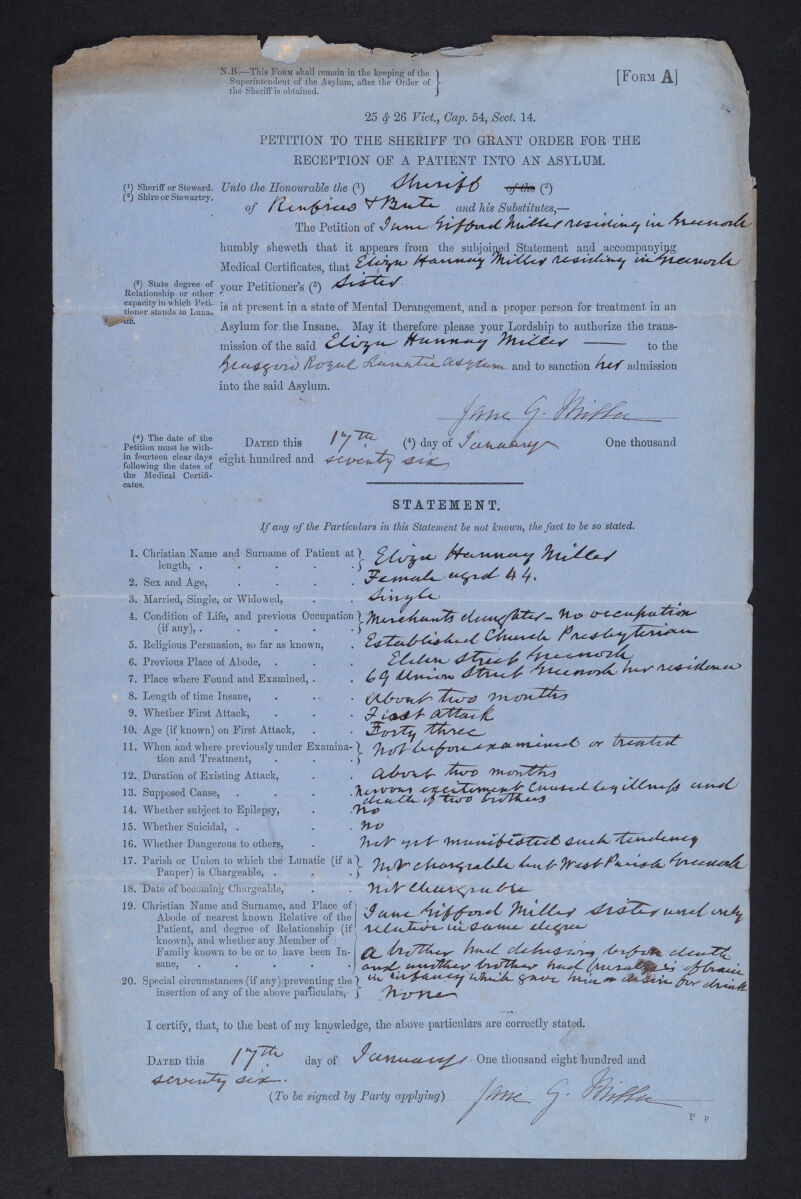 N.B.—This Form shall remain in the keeping of the
Superintendent of the Asylum, after the Order of
the Sheriff is obtained.
[Form A]
25 & 26 Vict., Cap. 54, Sect. 14.
PETITION TO THE SHERIFF TO GRANT ORDER FOR THE
RECEPTION OF A PATIENT INTO AN ASYLUM.
(1) Sheriff or Steward.
(2) Shire or Stewartry.
Unto the Honourable the (1) Sheriff of the (2)
of Renfrew & Bute and his Substitutes,—
The Petition of Jane Gifford Miller residing in Greenock
humbly sheweth that it appears from the subjoined Statement and accompanying
Medical Certificates, that Eliza Hannay Miller residing in Greenock
(3) State degree of
Relationship or other
capacity in which Peti-
tioner stands to Luna-
tic.
your Petitioner's (3) Sister
is at present in a state of Mental Derangement, and a proper person for treatment in an
Asylum for the Insane. May it therefore please your Lordship to authorize the trans-
mission of the said Eliza Hannay Miller — to the
Glasgow Royal Lunatic Asylum and to sanction her admission
into the said Asylum.
Jane G. Miller
(4) The date of the
Petition must be with-
in fourteen clear days
following the dates of
the Medical Certifi-
cates.
Dated this 17th (4) day of January One thousand
eight hundred and seventy six
STATEMENT.
If any of the Particulars in this Statement be not known, the fact to be so stated.
1. Christian Name and Surname of Patient at length, . . . . . Eliza Hannay Miller
2. Sex and Age, . . . . Female aged 44.
3. Married, Single, or Widowed, . . Single
4. Condition of Life, and previous Occupation (if any), . . . . . Merchants daughter - no occupation
5. Religious Persuasion, so far as known, . Established Church Presbyterian
6. Previous Place of Abode, . . . Eldon Street Greenock
7. Place where Found and Examined, . . 69 Union Street Greenock her residence
8. Length of time Insane, . . . About two months
9. Whether First Attack, . . . First attack
10. Age (if known) on First Attack, . . Forty three
11. When and where previously under Examination and Treatment, . . . Not before examined or treated
12. Duration of Existing Attack, . . About two months
13. Supposed Cause, . . . . Nervous excitement caused by illness and
death of two brothers
14. Whether subject to Epilepsy, . . No
15. Whether Suicidal, . . . No
16. Whether Dangerous to others, . . Not yet manifested such tendency
17. Parish or Union to which the Lunatic (if a Pauper) is Chargeable, . . . Not chargeable but West Parish Greenock
18. Date of becoming Chargeable, . . Not chargeable
19. Christian Name and Surname, and Place of Abode of nearest known Relative of the Patient, and degree of Relationship (if known), and whether any Member of Family known to be or to have been Insane, . . . . .
Jane Gifford Miller sister and only
relative in same degree
A brother had delusions before death
and another brother had of brain
in infancy which gave him a desire for drink
20. Special circumstances (if any) preventing the insertion of any of the above particulars, None
I certify, that, to the best of my knowledge, the above particulars are correctly stated.
Dated this 17th day of January One thousand eight hundred and
seventy six.
(To be signed by Party applying) Jane G. Miller
P P